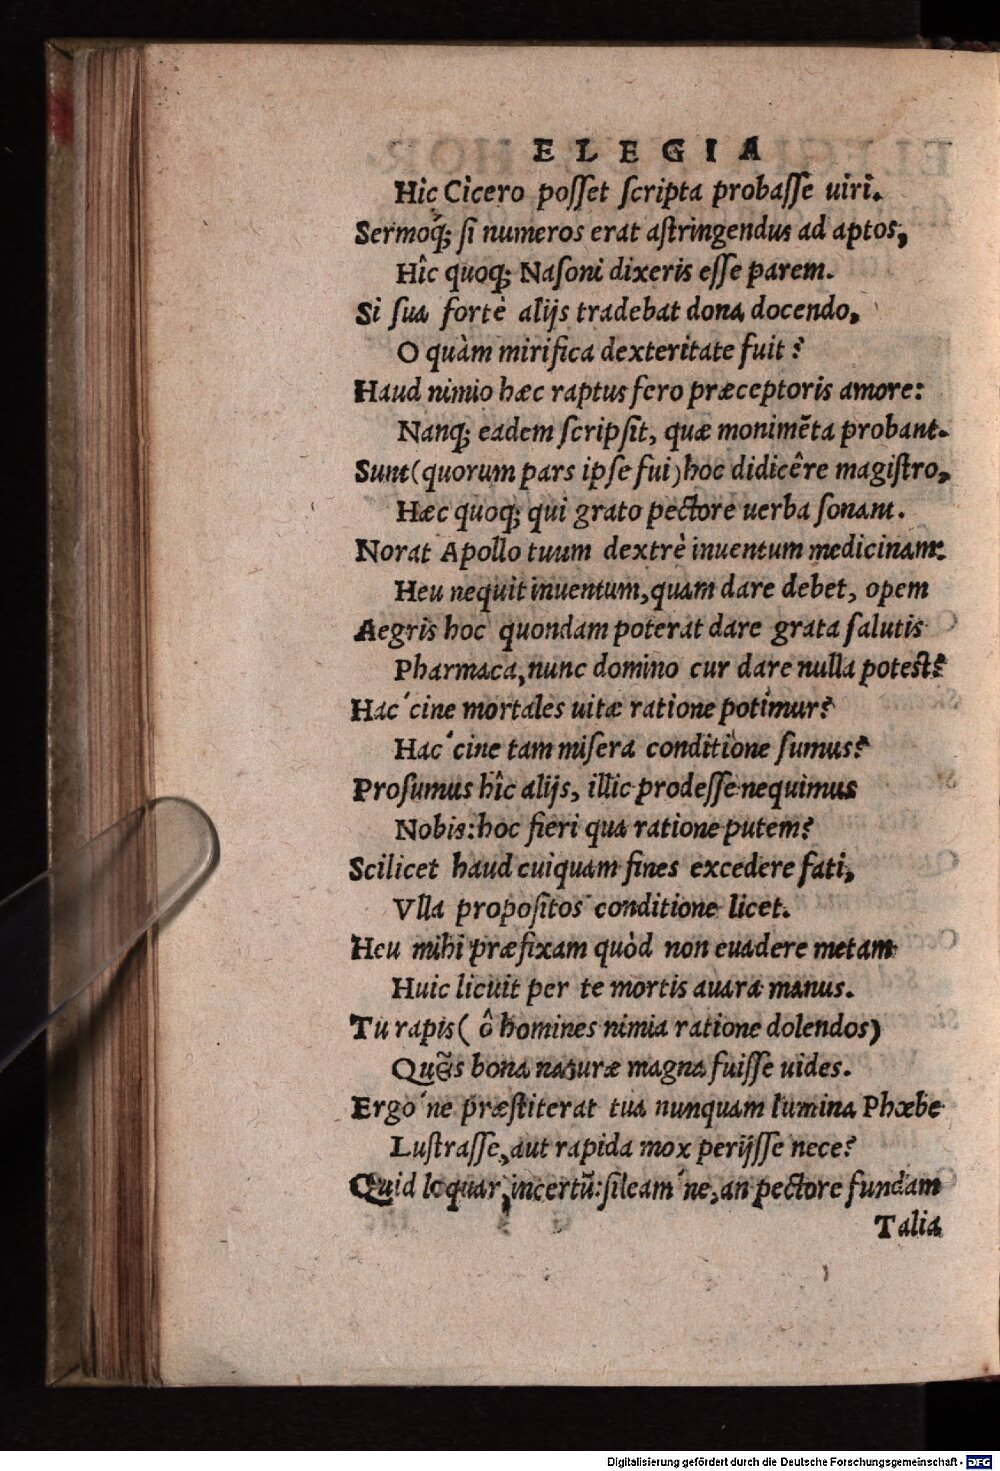 ELEGIA
Hic Cicero posset scripta probasse uiri.
Sermoq́; si numeros erat astringendus ad aptos,
Hîc quoq; Nasoni dixeris esse parem.
Si sua fortè alijs tradebat dona docendo,
O quàm mirifica dexteritate fuit?
Haud nimio hæc raptus fero præceptoris amore:
Nanq; eadem scripsit, quæ monimẽta probant.
Sunt (quorum pars ipse fui) hoc didicêre magistro,
Hæc quoq; qui grato pectore uerba sonant.
Norat Apollo tuum dextrè inuentum medicinam:
Heu nequit inuentum, quam dare debet, opem
Aegris hoc quondam poterat dare grata salutis
Pharmaca, nunc domino cur dare nulla potest?
Hac´cine mortales uitæ ratione potimur?
Hac´cine tam misera conditione sumus?
Prosumus hîc alijs, illic prodesse nequimus
Nobis: hoc fieri qua ratione putem?
Scilicet haud cuiquam fines excedere fati,
Vlla propositos conditione licet.
Heu mihi præfixam quòd non euadere metam
Huic licuit per te mortis auara manus.
Tu rapis (ô homines nimia ratione dolendos)
Quẽis bona naturæ magna fuisse uides.
Ergo´ne præstiterat tua nunquam lumina Phœbe
Lustrasse, aut rapida mox perijsse nece?
Quid loquar, incertũ: sileam´ne, an pectore fundam
Talia
Digitalisierung gefördert durch die Deutsche Forschungsgemeinschaft - DFG